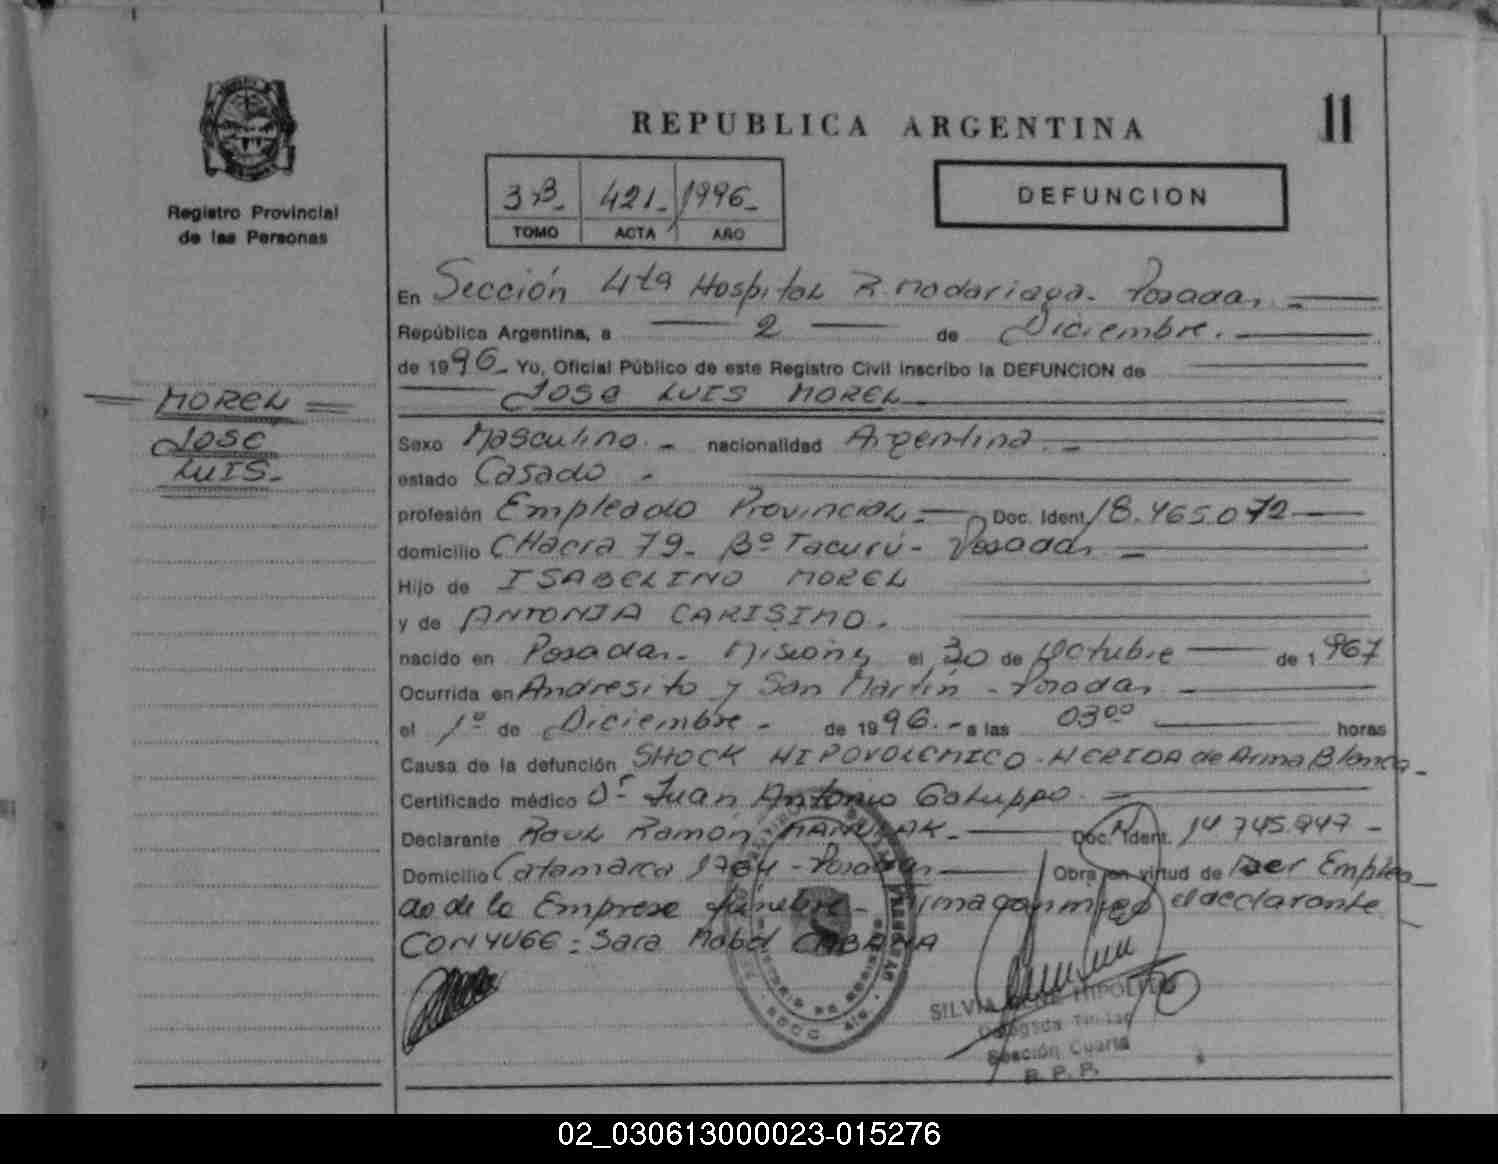 REPUBLICA ARGENTINA
11
Registro Provincial
de las Personas
3 B- 421- 1996-
TOMO ACTA AÑO
DEFUNCION
MOREL
JOSE
LUIS-
En Sección 4ta Hospital R. Madariaga- Posadas
República Argentina, a 2 de Diciembre.
de 1996- Yo, Oficial Público de este Registro Civil inscribo la DEFUNCION de
JOSE LUIS MOREL
Sexo Masculino.- nacionalidad Argentina.-
estado Casado -
profesión Empleado Provincial.- Doc. Ident. 18.465.072
domicilio CHacra 79- Bº Tacurú- Posadas
Hijo de ISABELINO MOREL
y de ANTONIA CARISIMO.
nacido en Posadas- Misiones el 30 de Octubre de 1967
Ocurrida en Andresito y San Martín - Posadas
el 1º de Diciembre - de 1996.- a las 03ºº horas
Causa de la defunción SHOCK HIPOVOLEMICO - HERIDA de Arma Blanca-
Certificado médico Dr Juan Antonio Galuppo
Declarante Raul Ramon Doc. Ident. 14.745.947-
Domicilio Catamarca 1764 - Posadas Obra en virtud de ser Emplea-
do de la Empresa fúnebre- el declarante
CONYUGE: Sara Mabel
SILVIA HIPOLITO
Delegada Titular
Sección Cuarta
R. P. P.
02_030613000023-015276